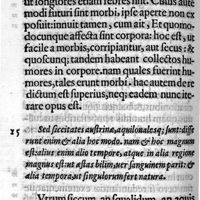 ut longiores etiam febres fint. Cuius aute
modi futuri sint morbi, ipse aperte non ex
posuit: innuit tamen, cum ait, Et quomo.
docunque affecta sint corpora: hoc est, ut
facile a morbis, corripiantur, aut secus: &
quoscunq; tandem habeant collectos hu-
mores in corpore. nam quales fuerint hu-
mores, tales erunt morbi. hac autem de re
dictum est superius, neq; eadem nunc ite-
rare opus est.
15 Sed siccitates austrinæ, aquilonalesq; sunt: diffe
runt enim & aliæ hoc modo. nam & hoc magnum
est: alius enim alio tempore, atque in alia regione
magnus est: ut æstas bilim, uer sanguinem parit: &
alia tempora, ut singulorum fert natura.
Vtrum siccum, an squalidum, an aquis